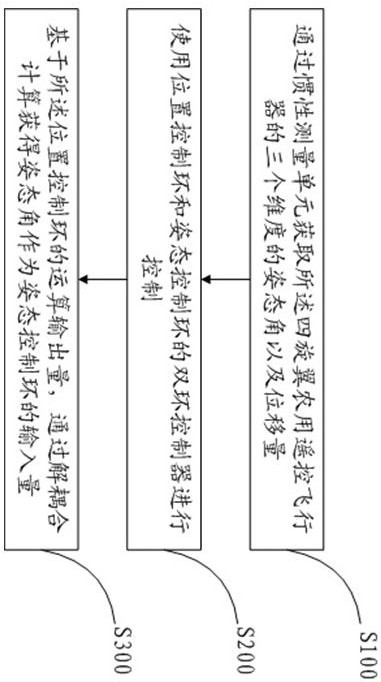 通过惯性测量单元获取所述四旋翼农用遥控飞行
器的三个维度的姿态角以及位移量
S100
使用位置控制环和姿态控制环的双环控制器进行
控制
S200
基于所述位置控制环的运算输出量，通过解耦合
计算获得姿态角作为姿态控制环的输入量
S300